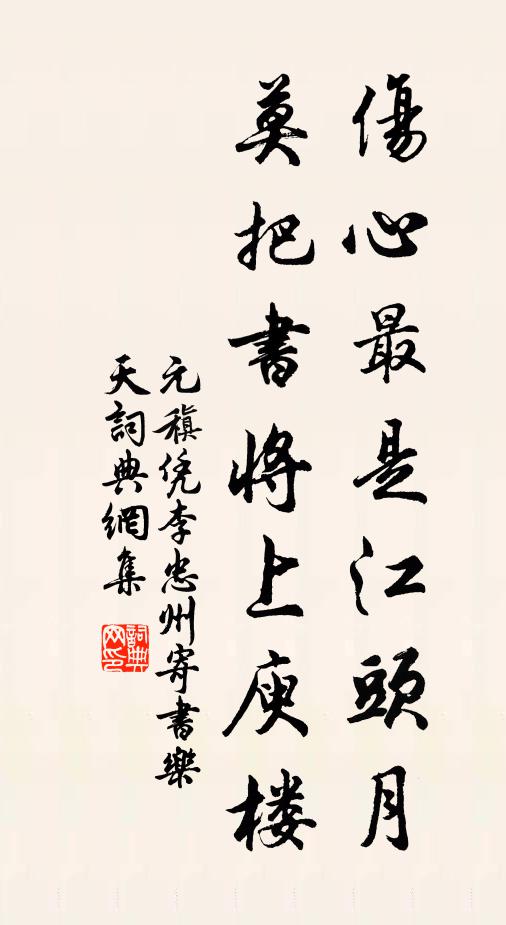 傷心最是江頭月
莫把書將上庾楼
元稹凭李忠州寄書樂
天詞典網集
詞典
网印